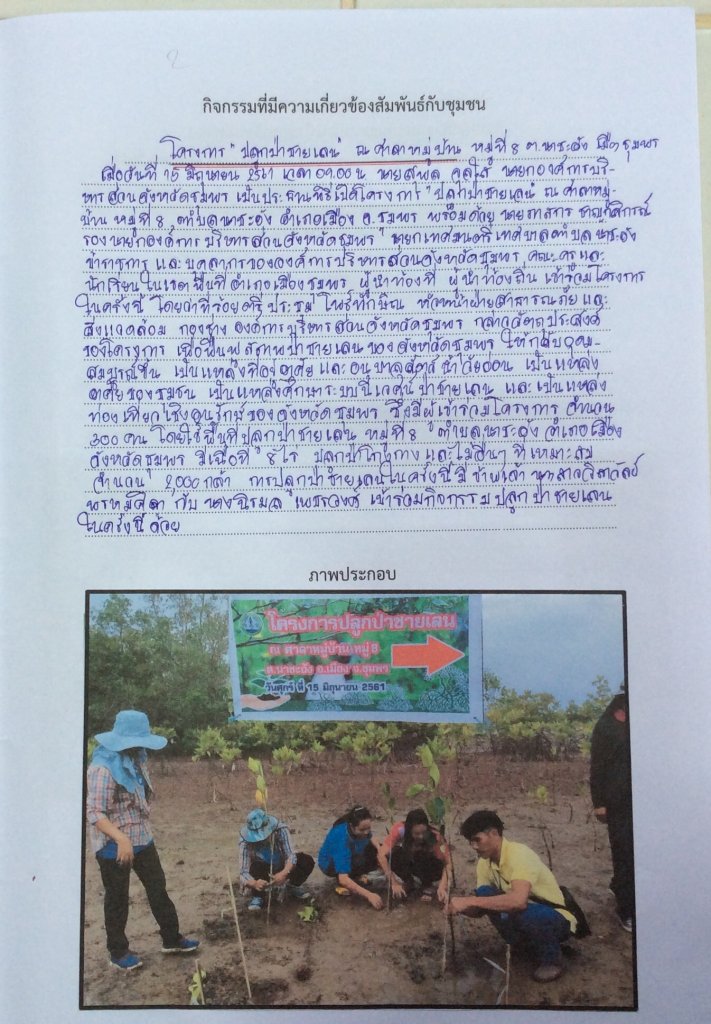 2
กิจกรรมที่มีความเกี่ยวข้องสัมพันธ์กับชุมชน
โครงการ "ปลูกป่าชายเลน" ณ ศาลาหมู่บ้าน หมู่ที่ 8 ต.นาชะอัง เมือง ชุมพร
เมื่อวันที่ 15 มิถุนายน 2561 เวลา 09.00 น นายสุพล จุลใส นายกองค์การบริ-
หารส่วนจังหวัดชุมพร เป็นประธานพิธีเปิดโครงการ "ปลูกป่าชายเลน" ณ ศาลาหมู่-
บ้าน หมู่ที่ 8 ตำบลนาชะอัง อำเภอเมือง จ.ชุมพร พร้อมด้วย นาย
รองนายกองค์การบริหารส่วนจังหวัดชุมพร นายกเทศมนตรีเทศบาลตำบลนาชะอัง
ข้าราชการ และบุคลากรขององค์การบริหารส่วนจังหวัดชุมพร คณะครูและ
นักเรียนในเขตพื้นที่อำเภอเมืองชุมพร ผู้นำท้องที่ ผู้นำท้องถิ่น เข้าร่วมโครงการ
ในครั้งนี้ โดยว่าที่ร้อยตรี ประชุม โพธิ์ทักษิณ หัวหน้าฝ่ายสาธารณภัยและ
สิ่งแวดล้อม กองช่าง องค์การบริหารส่วนจังหวัดชุมพร กล่าววัตถุประสงค์
ของโครงการ เพื่อฟื้นฟูสภาพป่าชายเลนของจังหวัดชุมพร ให้กลับอุดม-
สมบูรณ์ขึ้น เป็นแหล่งที่อยู่อาศัย และอนุบาลสัตว์น้ำวัยอ่อน เป็นแหล่ง
อาศัยของชุมชน เป็นแหล่งศึกษาระบบนิเวศน์ป่าชายเลน และเป็นแหล่ง
ท่องเที่ยวเชิงอนุรักษ์ของจังหวัดชุมพร ซึ่งมีผู้เข้าร่วมโครงการ จำนวน
300 คน โดยใช้พื้นที่ปลูกป่าชายเลน หมู่ที่ 8 ตำบลนาชะอัง อำเภอเมือง
จังหวัดชุมพร มีเนื้อที่ 8 ไร่ ปลูกป่าโกงกาง และไม้อื่นๆ ที่เหมาะสม
จำนวน 2,000 กล้า การปลูกป่าชายเลนในครั้งนี้มี ข้าพเจ้า นางสาววิลาวัลย์
พรหมศิลา กับ นางนิรมล เพชรวงศ์ เข้าร่วมกิจกรรมปลูกป่าชายเลน
ในครั้งนี้ด้วย
ภาพประกอบ
โครงการปลูกป่าชายเลน
ณ ศาลาหมู่บ้าน หมู่ 8
ต.นาชะอัง อ.เมือง จ.ชุมพร
วันศุกร์ ที่ 15 มิถุนายน 2561